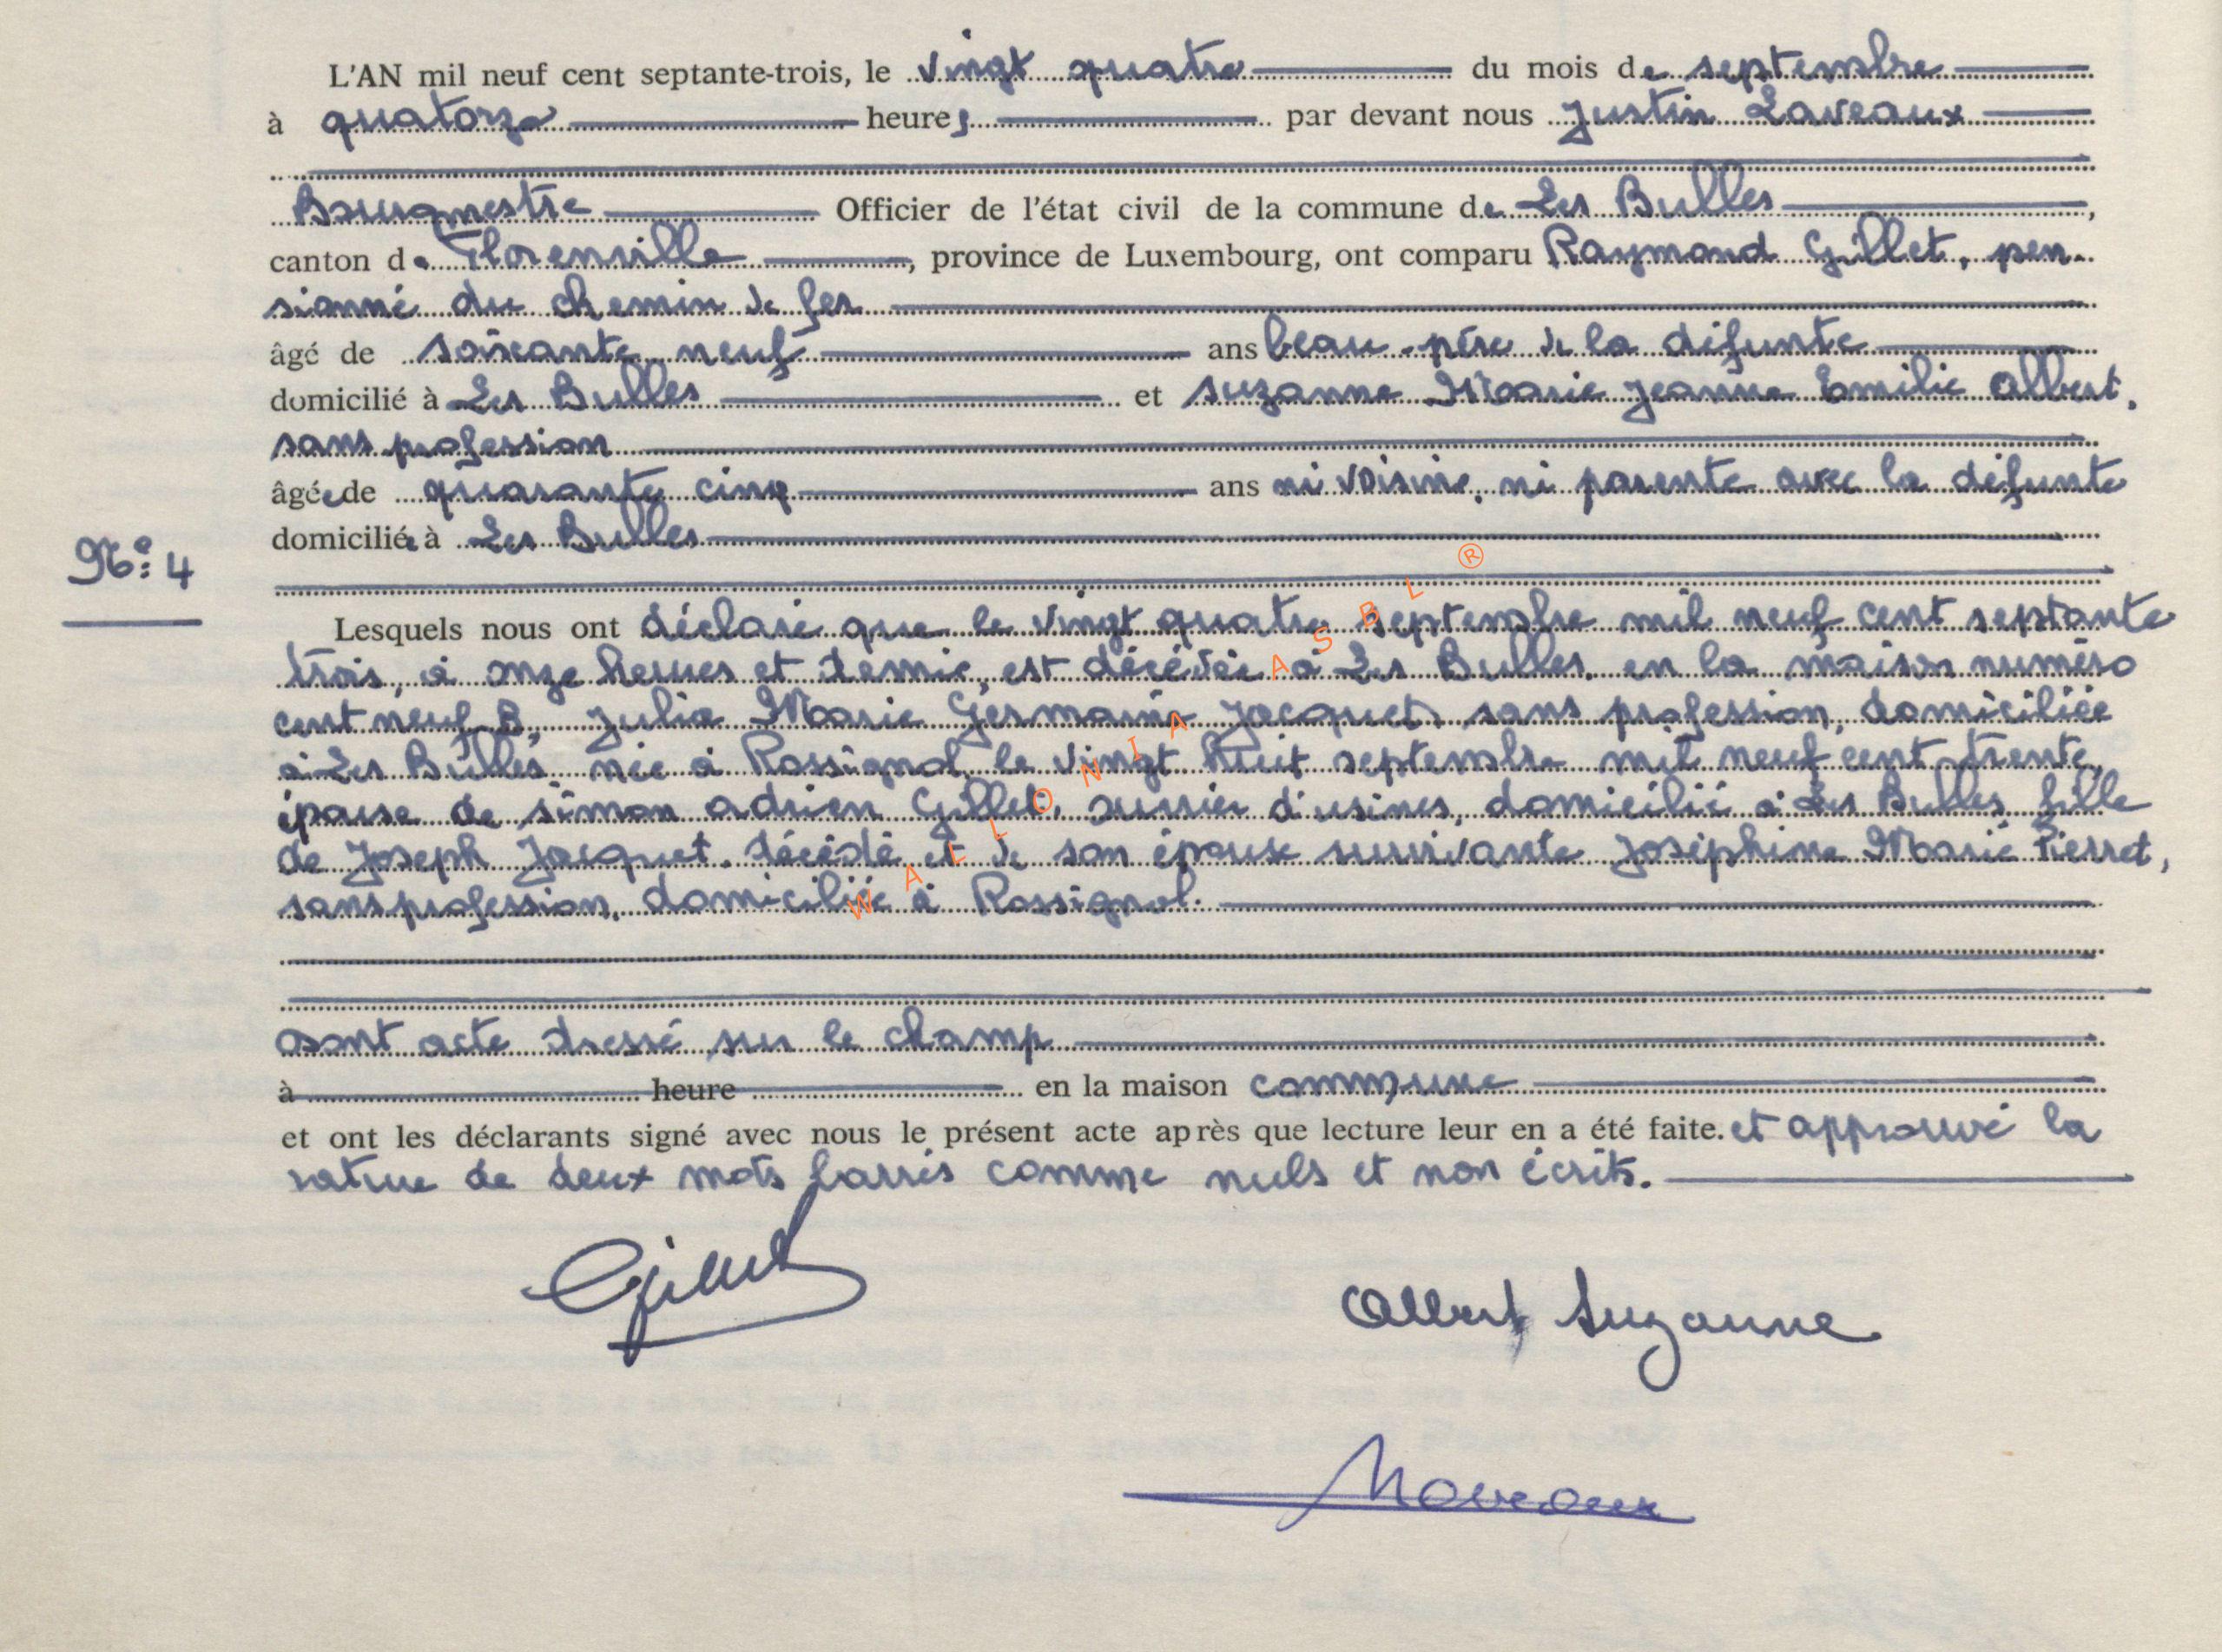 L'AN mil neuf cent septante-trois, le vingt quatre du mois de septembre
à quatorze heures par devant nous Justin Laveaux
Bourgmestre Officier de l'état civil de la commune de Les Bulles,
canton de Florenville, province de Luxembourg, ont comparu Raymond Gillet, pen-
sionné du chemin de fer
âgé de soixante neuf ans beau-père de la défunte
domicilié à Les Bulles et Suzanne Marie Jeanne Emilie Albert,
sans profession
âgée de quarante cinq ans ni voisine, ni parente avec la défunte
domiciliée à Les Bulles
No: 4
Lesquels nous ont déclaré que le vingt quatre septembre mil neuf cent septante
trois, à onze heures et demie, est décédée à Les Bulles, en la maison numéro
cent neuf B, Julia Marie Germaine Jacquet, sans profession, domiciliée
à Les Bulles, née à Rossignol, le vingt huit septembre mil neuf cent trente,
épouse de Simon Adrien Gillet, ouvrier d'usines, domicilié à Les Bulles, fille
de Joseph Jacquet, décédé et de son épouse survivante Joséphine Marie Pierret,
sans profession, domiciliée à Rossignol.
WALLONIA ASBL ®
Dont acte dressé sur le champ
à heure en la maison commune
et ont les déclarants signé avec nous le présent acte après que lecture leur en a été faite. et approuvé la
rature de deux mots barrés comme nuls et non écrits.
Gillet
Albert Suzanne